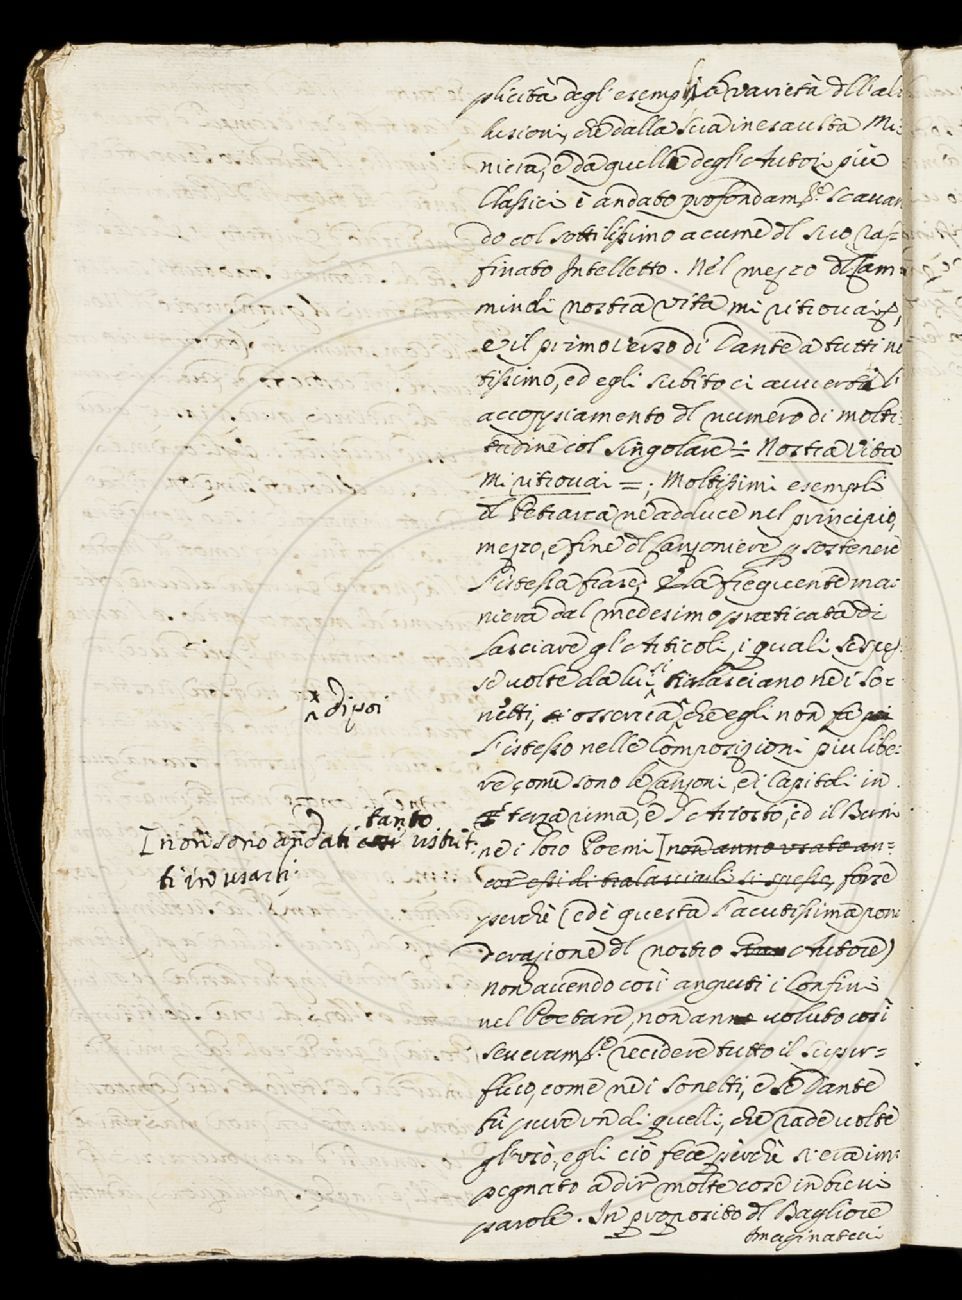 plicità degl'esempli, la varietà dell'al-
lusioni, che dalla sua inesausta Mi-
niera, e da quella degl'Autori più
Classici è andato profondam.te scavan
do col sottilissimo acume del suo raf-
finato Intelletto. Nel mezzo del Cam-
min di nostra vita mi ritrovai
e il primo verso di Dante a tutti no
tissimo, ed egli subito ci avverte l'
accoppiamento del numero di molti-
tudine col singolare = Nostra Vita
Mi ritrovai =; Moltissimi esempli
del Petrarca ne adduce nel principio,
mezzo, e fine del Canzoniere p sostenere
l'istessa frase; La frequente ma-
niera dal medesimo praticata di
lasciare gl'Articoli, i quali se spes-
se volte da lui si tralasciano nei So-
netti, osserva che egli non fe
x dipoi
l'istesso nelle Composizioni piu libe-
re come sono le Canzoni, e i Capitoli in
terza rima, e l'Ariosto, ed il Berni
nei loro Poemi [non anno usato an-
[non sono andati così tanto ristret-
ti in usarli;
cor essi di tralasciarli si spesso, forse
perchè (ed è questa l'acutissima pon
derazione del nostro Autore)
non avendo così angusti i Confini
nel Poetare, non anno voluto così
severam.te recidere tutto il super-
fluo, come nei Sonetti, e se Dante
fu pure un di quelli, che rade volte
gl'usò, egli ciò fece perchè s'era im-
pegnato a dir molte cose in brevi
parole. In proposito del Bagliore
Imaginatevi